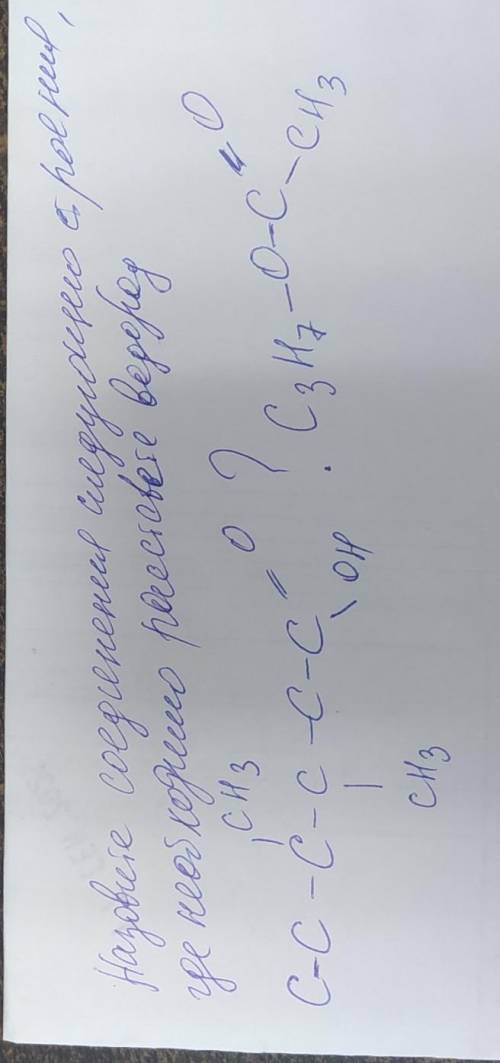 Назовите соединения следующего строения,
где необходимо расставьте водород
CH3 O
C-C-C-C-C-C=O ? . C3H7-O-C-CH3
OH
CH3